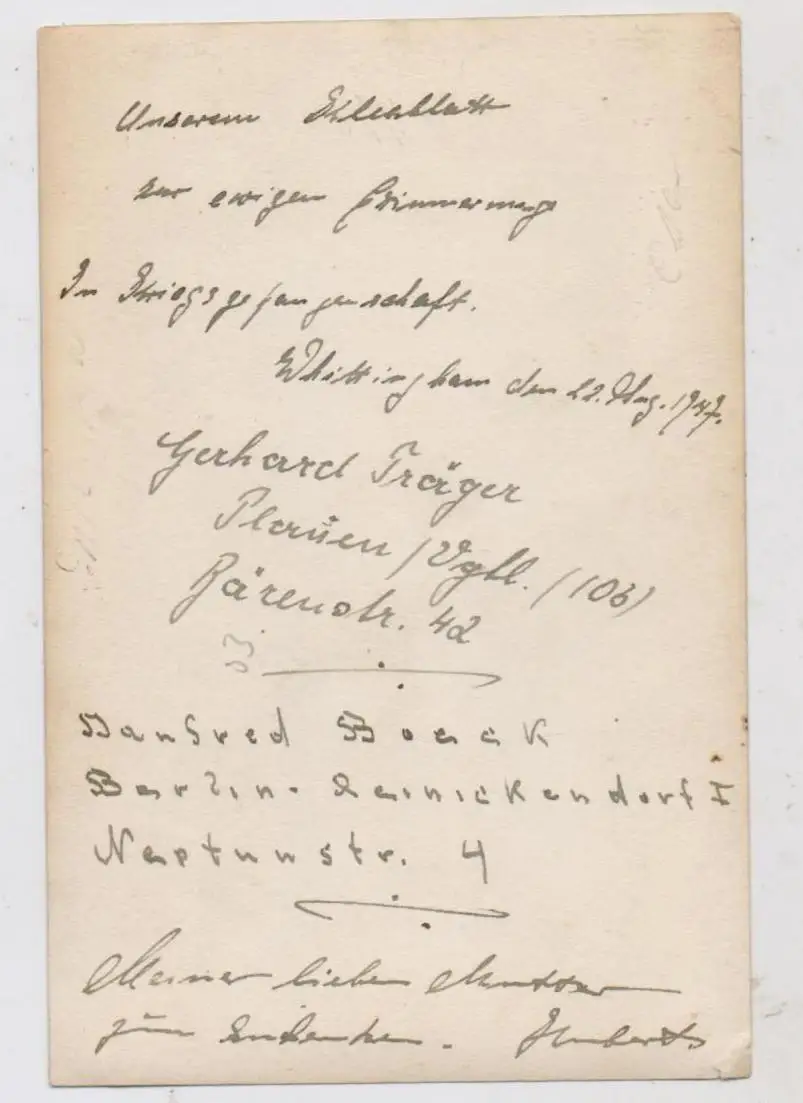 Unserem Kleeblatt
zur ewigen Erinnerung
In Kriegsgefangenschaft.
Whittingham den 22. Aug. 1947.
Gerhard Träger
Plauen / Vgtl. (10b)
Bärenstr. 42
Manfred Boeck
Berlin-Reinickendorf I
Neptunstr. 4
Meiner lieben Mutter
zum Andenken. Huberts